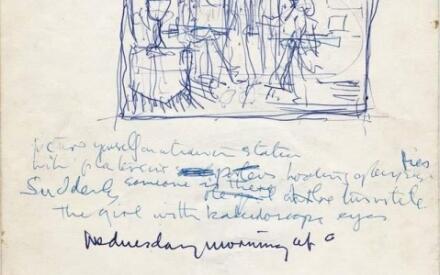 picture yourself on a train in a station
with plasticine porters looking glass ties
Suddenly someone is there at the turnstile
The girl with kaleidoscope eyes
Wednesday morning at